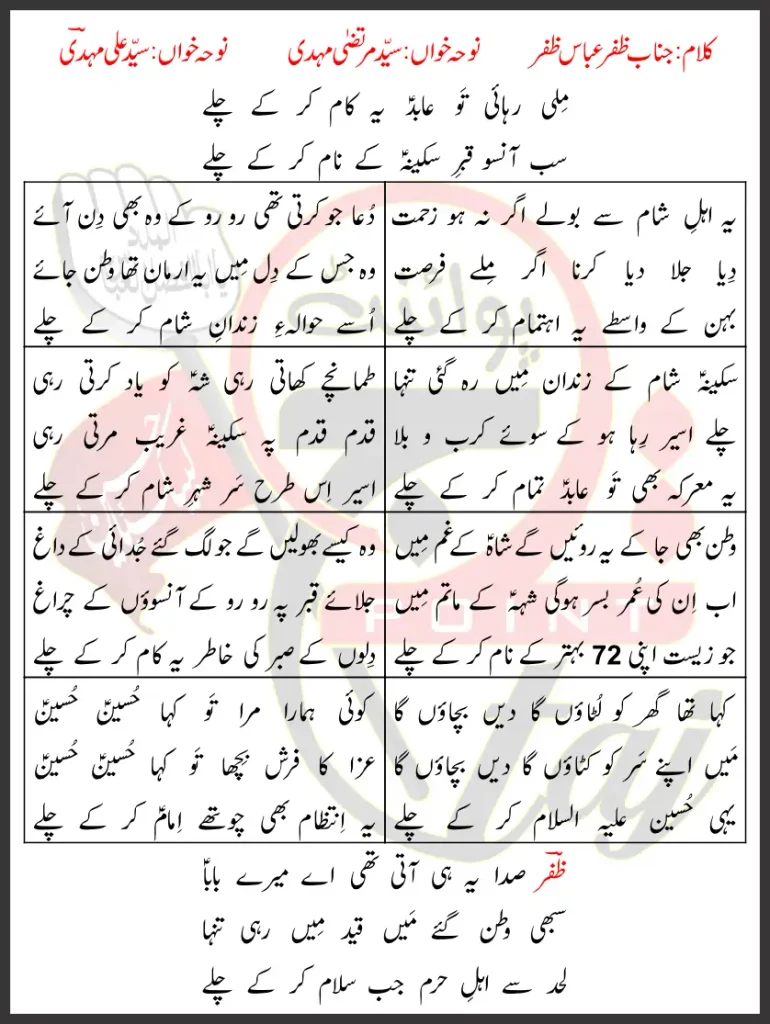 کلام: جناب ظفر عباس ظفر نوحہ خواں: سیّد مرتضیٰ مہدی نوحہ خواں: سیّد علی مہدیؔ
مِلی رہائی تَو عابدؑ یہ کام کر کے چلے
سب آنسو قبرِ سکینہؑ کے نام کر کے چلے
یہ اہلِ شام سے بولے اگر نہ ہو زحمت
دِیا جلا دیا کرنا اگر مِلے فرصت
بہن کے واسطے یہ اہتمام کر کے چلے
دُعا جو کرتی تھی رو رو کے وہ بھی دِن آئے
وہ جس کے دِل مِیں یہ ارمان تھا وطن جائے
اُسے حوالہءِ زندانِ شام کر کے چلے
سکینہؑ شام کے زندان مِیں رہ گئی تنہا
چلے اسیر رِہا ہو کے سوئے کرب و بلا
یہ معرکہ بھی تَو عابدؑ تمام کر کے چلے
طمانچے کھاتی رہی شہؑ کو یاد کرتی رہی
قدم قدم پہ سکینہؑ غریب مرتی رہی
اسیر اِس طرح سَر شہرِ شام کر کے چلے
وطن بھی جا کے یہ روئیں گے شاہؑ کے غم مِیں
اب اِن کی عُمر بسر ہوگی شہہؑ کے ماتم مِیں
جو زیست اپنی 72 بہتر کے نام کر کے چلے
وہ کیسے بھولیں گے جو لگ گئے جُدائی کے داغ
جلائے قبر پہ رو رو کے آنسوؤں کے چراغ
دِلوں کے صبر کی خاطر یہ کام کر کے چلے
کہا تھا گھر کو لُٹاؤں گا دیں بچاؤں گا
مَیں اپنے سَر کو کٹاؤں گا دیں بچاؤں گا
یہی حُسین علیہ السلام کر کے چلے
کوئی ہمارا مرا تَو کہا حُسینؑ حُسینؑ
عزا کا فرش بِچھا تَو کہا حُسینؑ حُسینؑ
یہ اِنتظام بھی چوتھے اِمامؑ کر کے چلے
ظفرؔ صدا یہ ہی آتی تھی اے میرے باباؑ
سبھی وطن گئے مَیں قید مِیں رہی تنہا
لحد سے اہلِ حرم جب سلام کر کے چلے
پوائنٹ
POINT
Taj